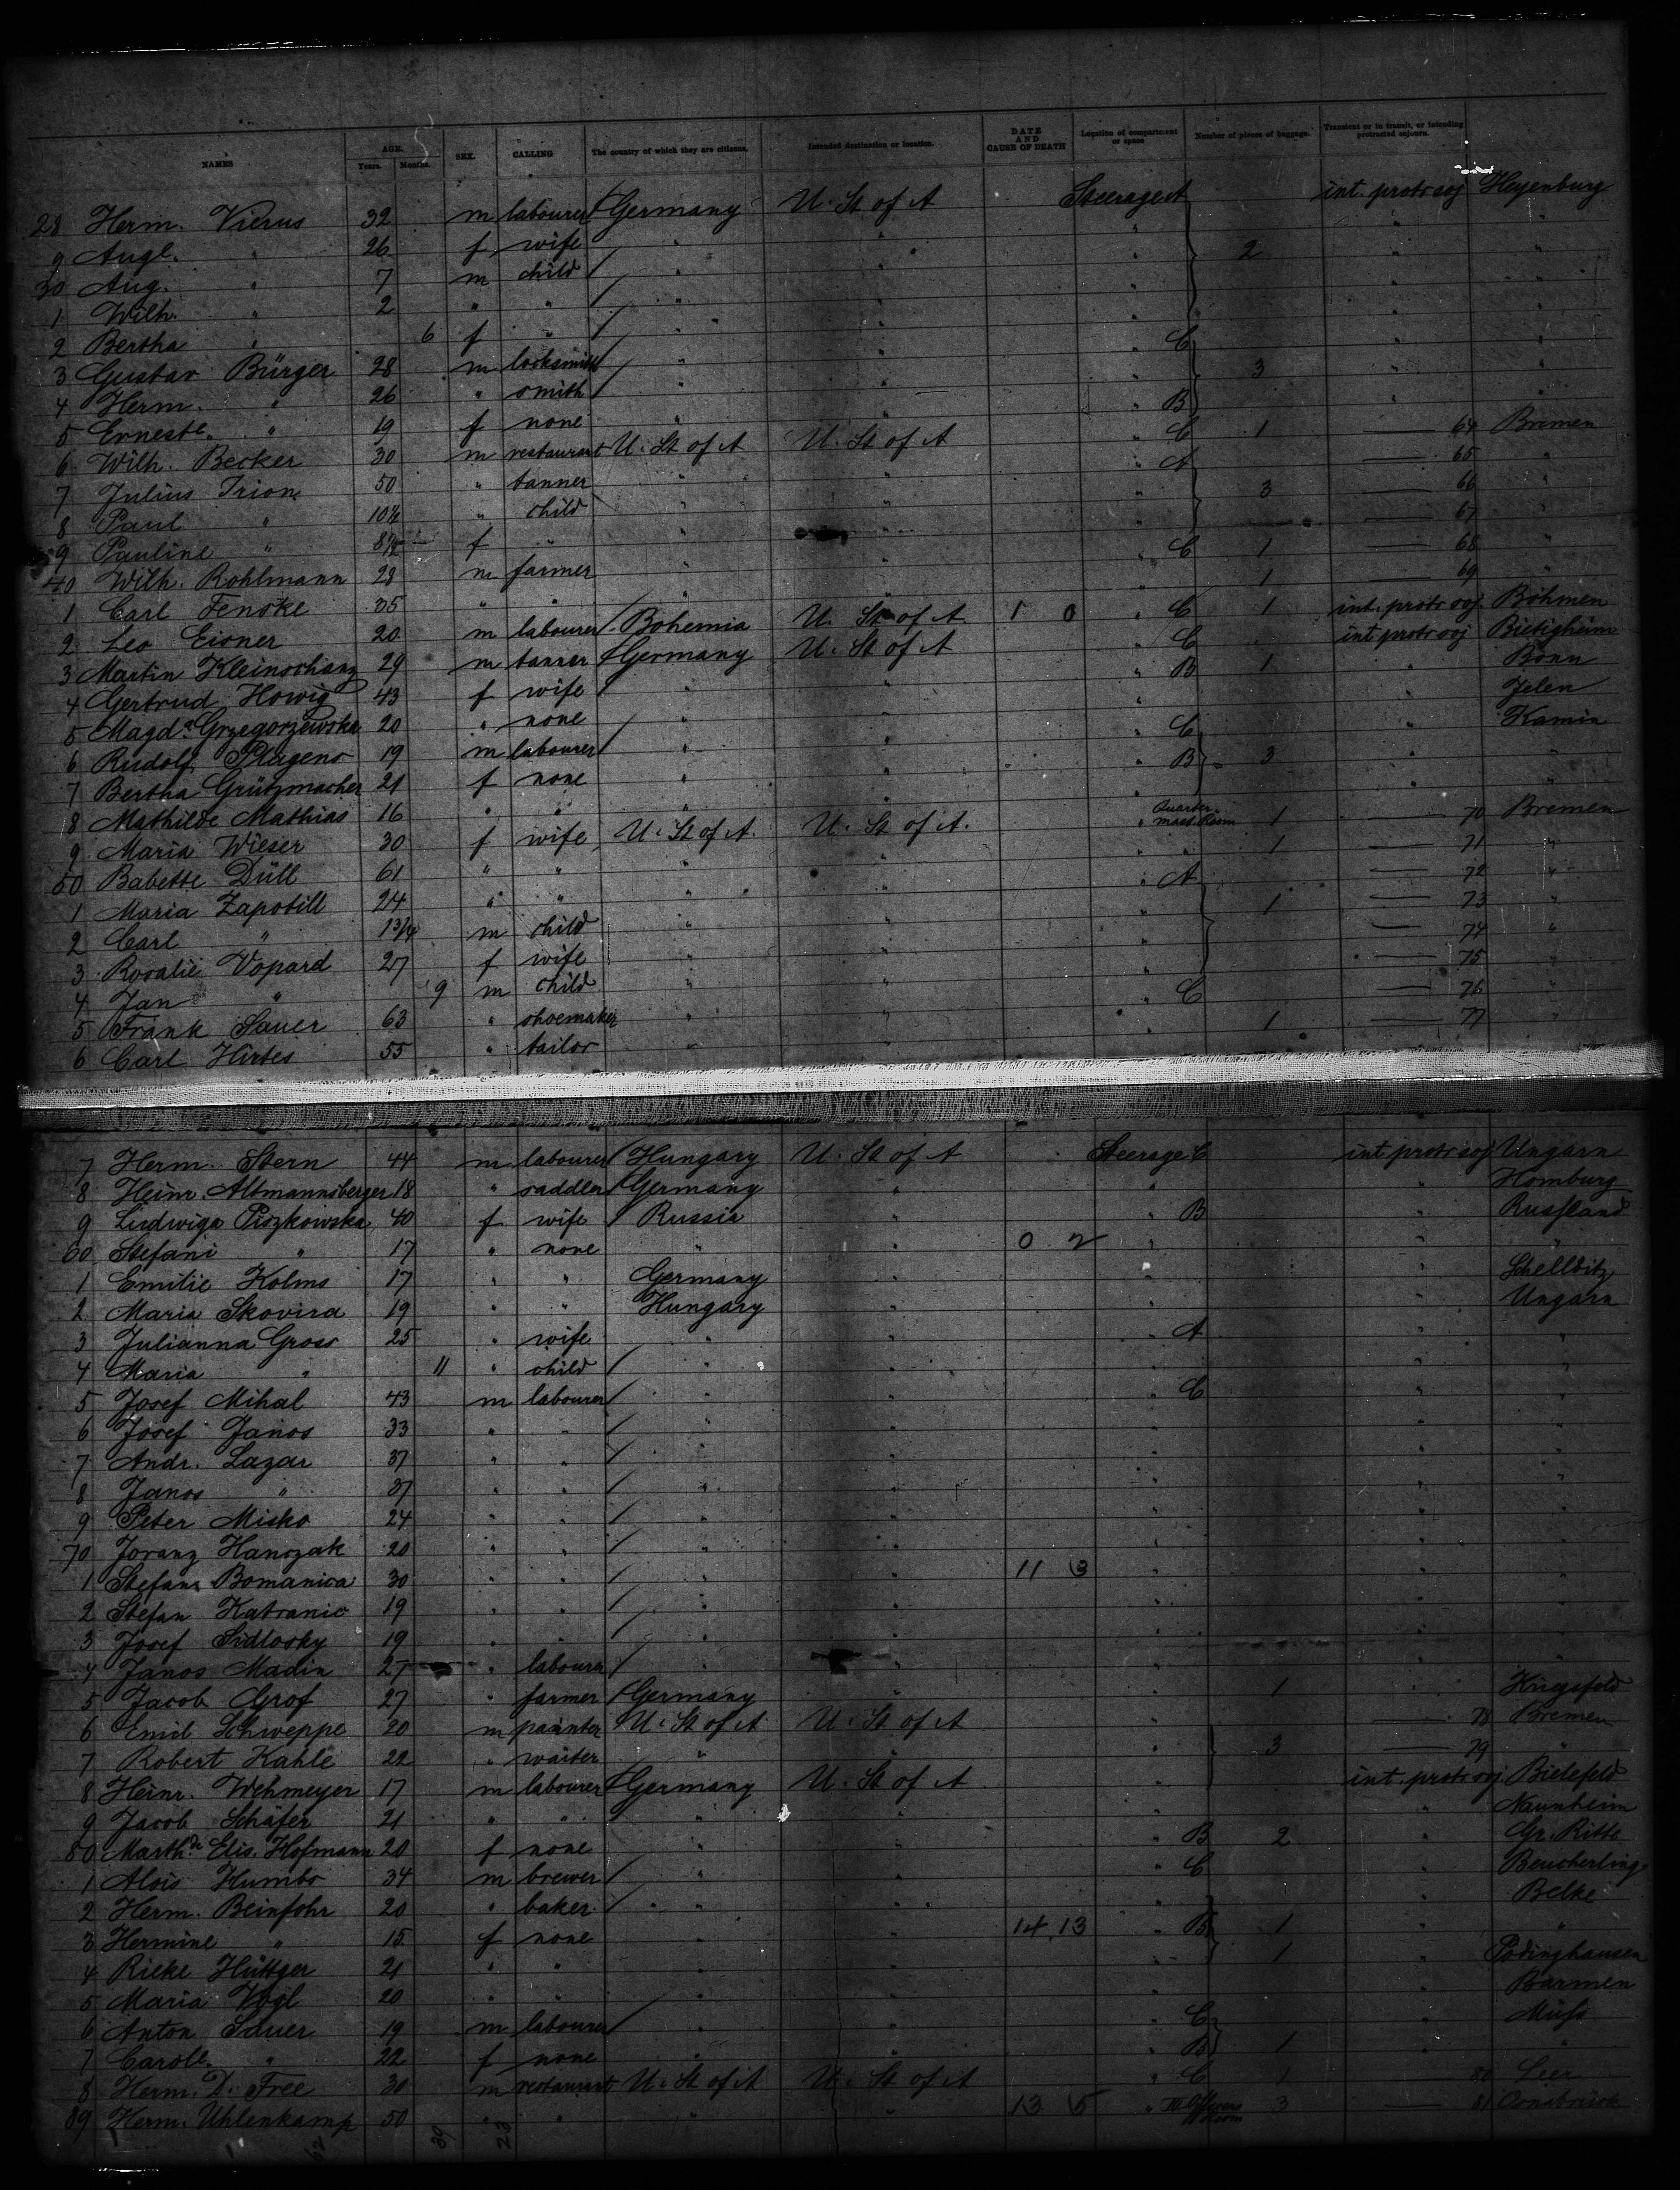 NAMES AGE. Years. Months. SEX. CALLING The country of which they are citizens. Intended destination or location. DATE AND CAUSE OF DEATH Location of compartment or space Number of pieces of baggage. Transient or in transit, or intending protracted sojourn.
28 Herm. Vierus 32 m labourer / Germany U. St of A Steerage A int. protr soj Heyenburg
9 Augl. " 26 f wife / " " " 2 " "
30 Aug. " 7 m child / " " " " "
1 Wilh. " 2 " " / " " " " "
2 Bertha " 6 f " / " " " " "
3 Gustav Bürger 28 m locksmith / " " " C 3 " "
4 Herm. " 26 " smith / " " " " "
5 Ernestl. " 19 f none " " " B " "
6 Wilh. Becker 30 m restaurant U. St of A U. St of A " C 1 — 64 Bremen
7 Julius Trion 50 " tanner " " " A 3 — 65 "
8 Paul " 10½ " child " " " — 66 "
9 Pauline " 8½ f " " " " — 67 "
40 Wilh. Rohlmann 28 m farmer " " " C 1 — 68 "
1 Carl Fenske 35 " " " " " 1 — 69 "
2 Leo Eisner 20 m labourer / Bohemia U. St of A 1 0 " C 1 int. protr soj. Böhmen
3 Martin Kleinschanz 29 m tanner / Germany U. St of A " C int protr soj Bietigheim
4 Gertrud Howig 43 f wife / " " " B 1 " Bonn
5 Magda Grzegorzewska 20 " none / " " " " Jelen
6 Rudolf Plagens 19 m labourer / " " " C " Kamin
7 Bertha Grützmacher 21 f none " " " B 3 " "
8 Mathilde Mathias 16 " " " " " "
9 Maria Wieser 30 f wife U. St of A. U. St of A. " Quarter mast. Room 1 — 70 Bremen
50 Babette Düll 61 " " " " " " 1 — 71 "
1 Maria Zapotill 24 " " " " " A 1 — 72 "
2 Carl " 1 3/4 m child " " " — 73 "
3 Rosalie Vopard 27 f wife " " " — 74 "
4 Jan " 9 m child " " " — 75 "
5 Frank Sauer 63 " shoemaker " " " C — 76 "
6 Carl Hirtes 55 " tailor " " " 1 — 77 "
7 Herm. Stern 44 m labourer / Hungary U. St of A Steerage C int protr soj Ungarn
8 Heinr. Altmannsberger 18 " saddler / Germany " " " Homburg
9 Ludwiga Piszkowska 40 f wife / Russia " " B " Russland
60 Stefani " 17 " none " " 0 2 " " "
1 Emilie Kolms 17 " " Germany " " " Schellbitz
2 Maria Skovira 19 " " Hungary " " " Ungarn
3 Julianna Gross 25 " wife " " " A " "
4 Maria " 11 " child / " " " " "
5 Josef Mihal 43 m labourer / " " " C " "
6 Josef Janos 33 " " / " " " " "
7 Andr. Lazar 37 " " / " " " " "
8 Janos " 37 " " / " " " " "
9 Peter Misko 24 " " / " " " " "
70 Joranz Hanszak 20 " " / " " " " "
1 Stefan Bomanica 30 " " / " " 11 3 " " "
2 Stefan Katranic 19 " " / " " " " "
3 Josef Sidlosky 19 " " / " " " " "
4 Janos Madin 27 " labourer / " " " " "
5 Jacob Grof 27 " farmer / Germany " " 1 " Kriegsfeld
6 Emil Schweppe 20 m painter U. St of A U. St of A " — 78 Bremen
7 Robert Kahle 22 " waiter " " " 3 — 79 "
8 Heinr. Wehmeyer 17 m labourer / Germany U. St of A " int. protr soj Bielefeld
9 Jacob Schäfer 21 " " " " " " Naunheim
80 Marth. Elis. Hofmann 20 f none " " " B 2 " Gr. Ritte
1 Alois Humbs 34 m brewer / " " " C " Beucherling
2 Herm. Beinfohr 20 " baker / " " " " Belke
3 Hermine " 15 f none " " 14 13 " B 1 " "
4 Rieke Hüttger 21 " " " " " 1 " Pödinghausen
5 Maria Vogl 20 " " " " " Barmen
6 Anton Sauer 19 m labourer / " " " C "
7 Carole. " 22 f none " " " B 1 " "
8 Herm. D. Free 30 m restaurant U. St of A U. St of A " C 1 80 Leer
89 Herm. Uhlenkamp 50 " " " " 13 5 " III Officers Room 3 — 81 Osnabrück
39 23